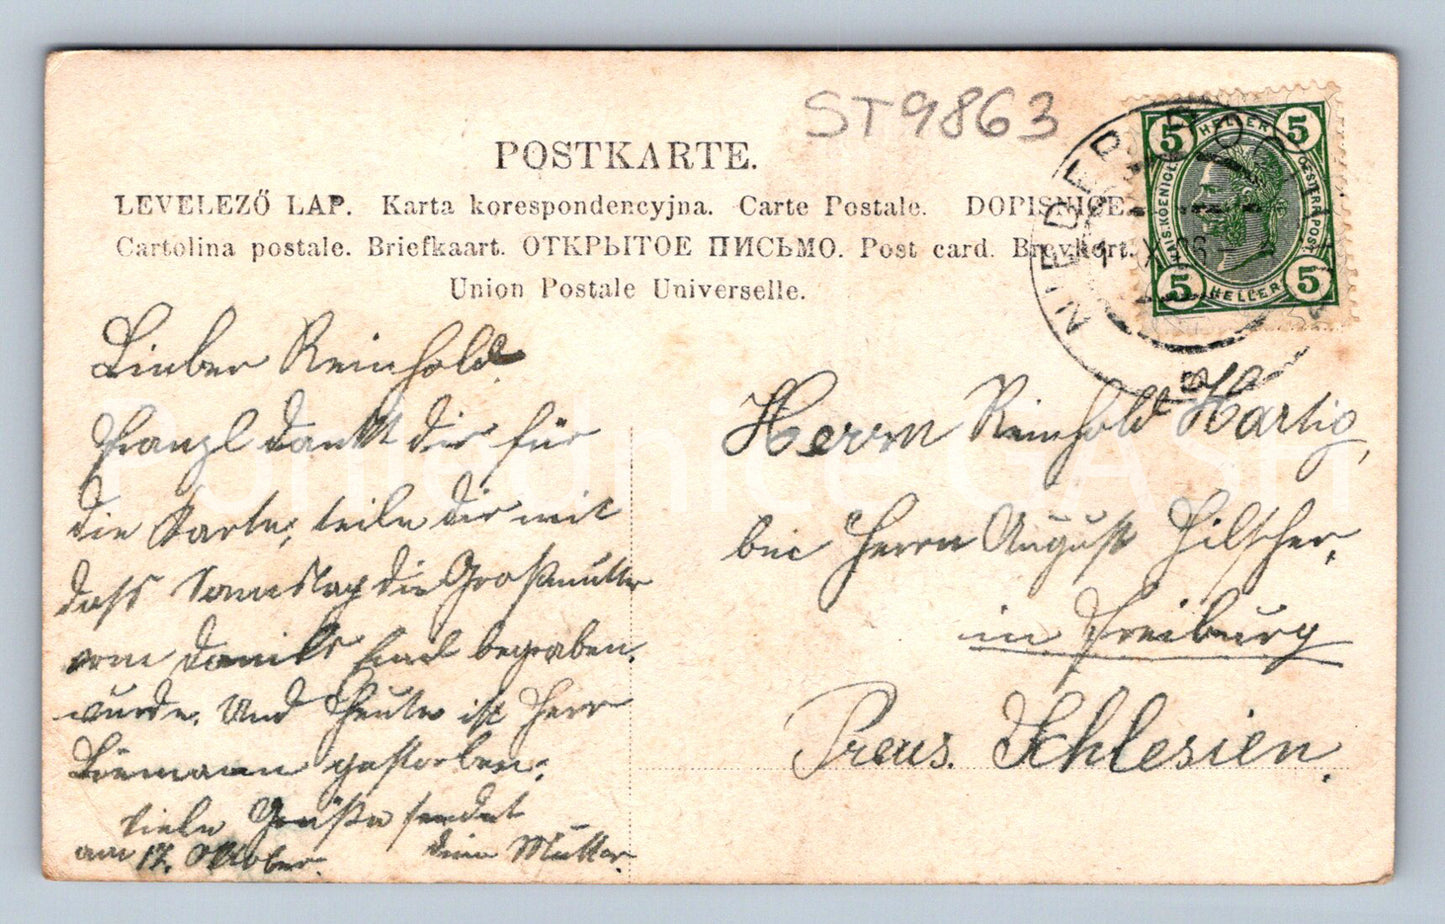 ST9863
POSTKARTE.
LEVELEZŐ LAP. Karta korespondencyjna. Carte Postale. DOPISNICE.
Cartolina postale. Briefkaart. ОТКРЫТОЕ ПИСЬМО. Post card. Brevkort.
Union Postale Universelle.
5 HELLER 5
KAIS. KOENIGL. OESTERR. POST
5 HELLER 5
NIEDER
Lieber Reinhold
Franzl dankt dir für
die Karte, teile dir mit
dass Samstag die Großmutter
vom begraben
wurde. Und Heute ist Herr
gestorben.
Viele Grüße sendet
am 17. Oktober. deine Mutter
Herrn Reinhold Hartig,
bei Herrn August Hilscher,
in Freiburg
Preus. Schlesien.
Pohlednice GASH